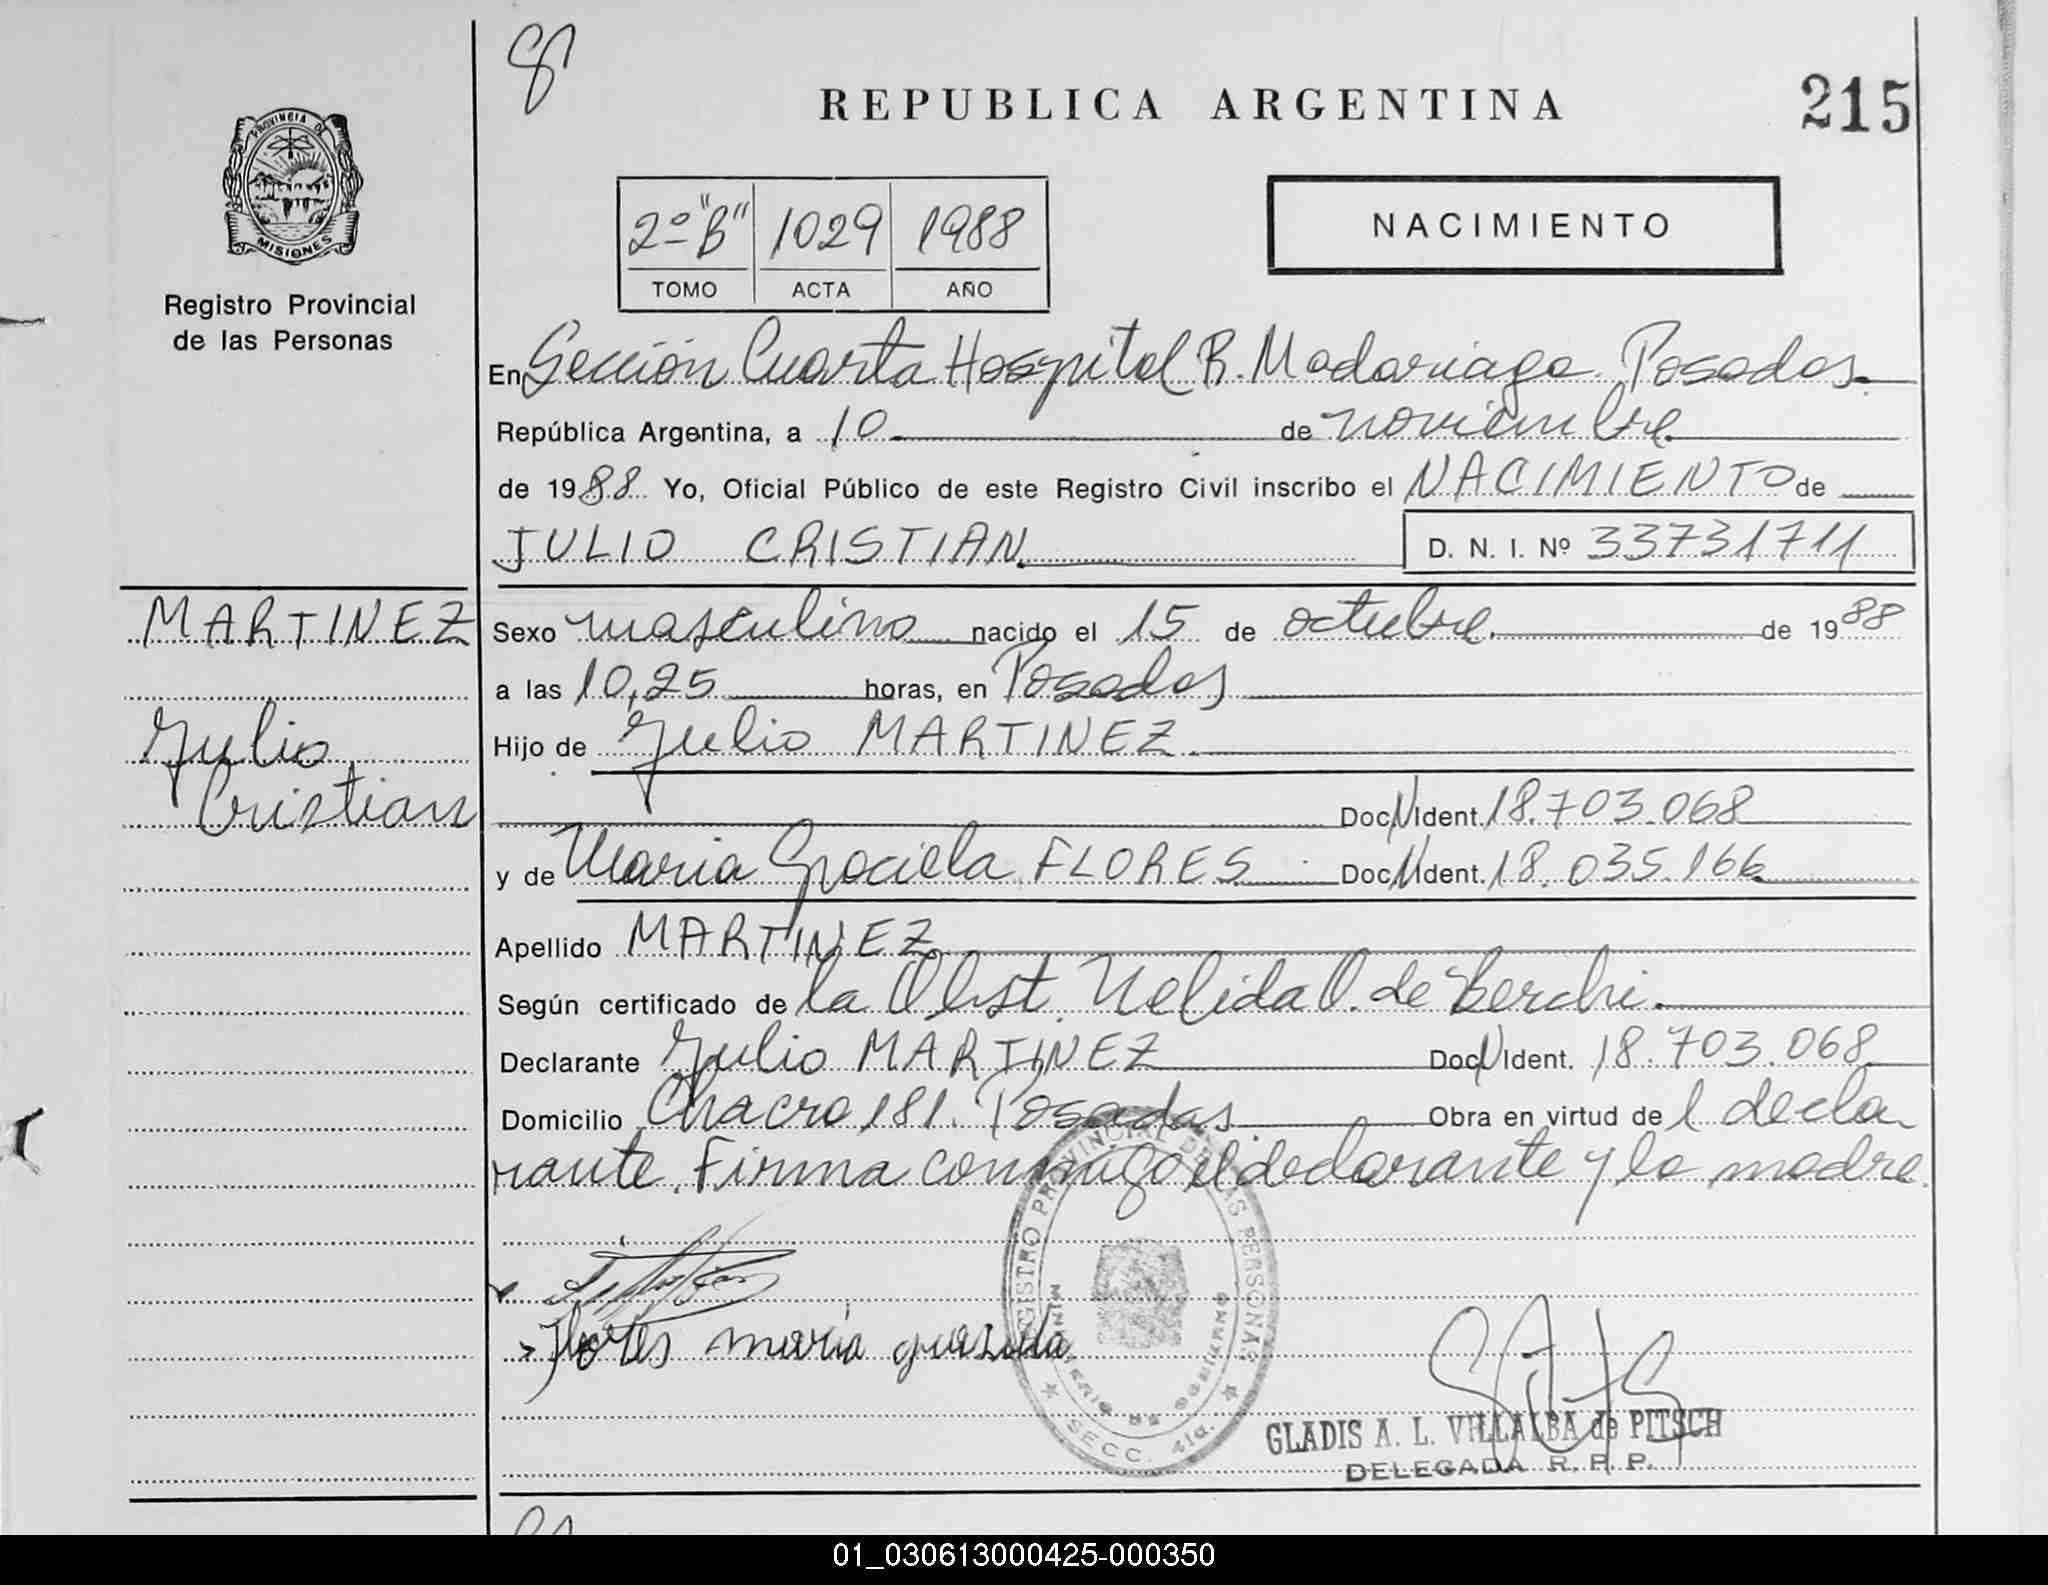 REPUBLICA ARGENTINA
215
PROVINCIA DE
MISIONES
Registro Provincial
de las Personas
2º "B" 1029 1988
TOMO ACTA AÑO
NACIMIENTO
En Sección Cuarta Hospital R. Madariaga. Posadas.
República Argentina, a 10 de noviembre
de 1988. Yo, Oficial Público de este Registro Civil inscribo el NACIMIENTO de
JULIO CRISTIAN D. N. I. Nº 33731711
MARTINEZ
Julio
Cristian
Sexo masculino nacido el 15 de octubre de 1988
a las 10,25 horas, en Posadas
Hijo de Julio MARTINEZ
Doc N Ident. 18.703.068
y de Maria Graciela FLORES Doc N Ident. 18.035.166
Apellido MARTINEZ
Según certificado de la Obst. Nelida O. de Berchi.
Declarante Julio MARTINEZ Doc N Ident. 18.703.068
Domicilio Chacra 181. Posadas. Obra en virtud de l decla
rante. Firma conmigo el declarante y la madre.
Flores maria
REGISTRO PROVINCIAL DE LAS PERSONAS
MINISTERIO DE GOBIERNO
SECC. 4ta.
GLADIS A. L. VILLALBA de PITSCH
DELEGADA R. P. P.
01_030613000425-000350